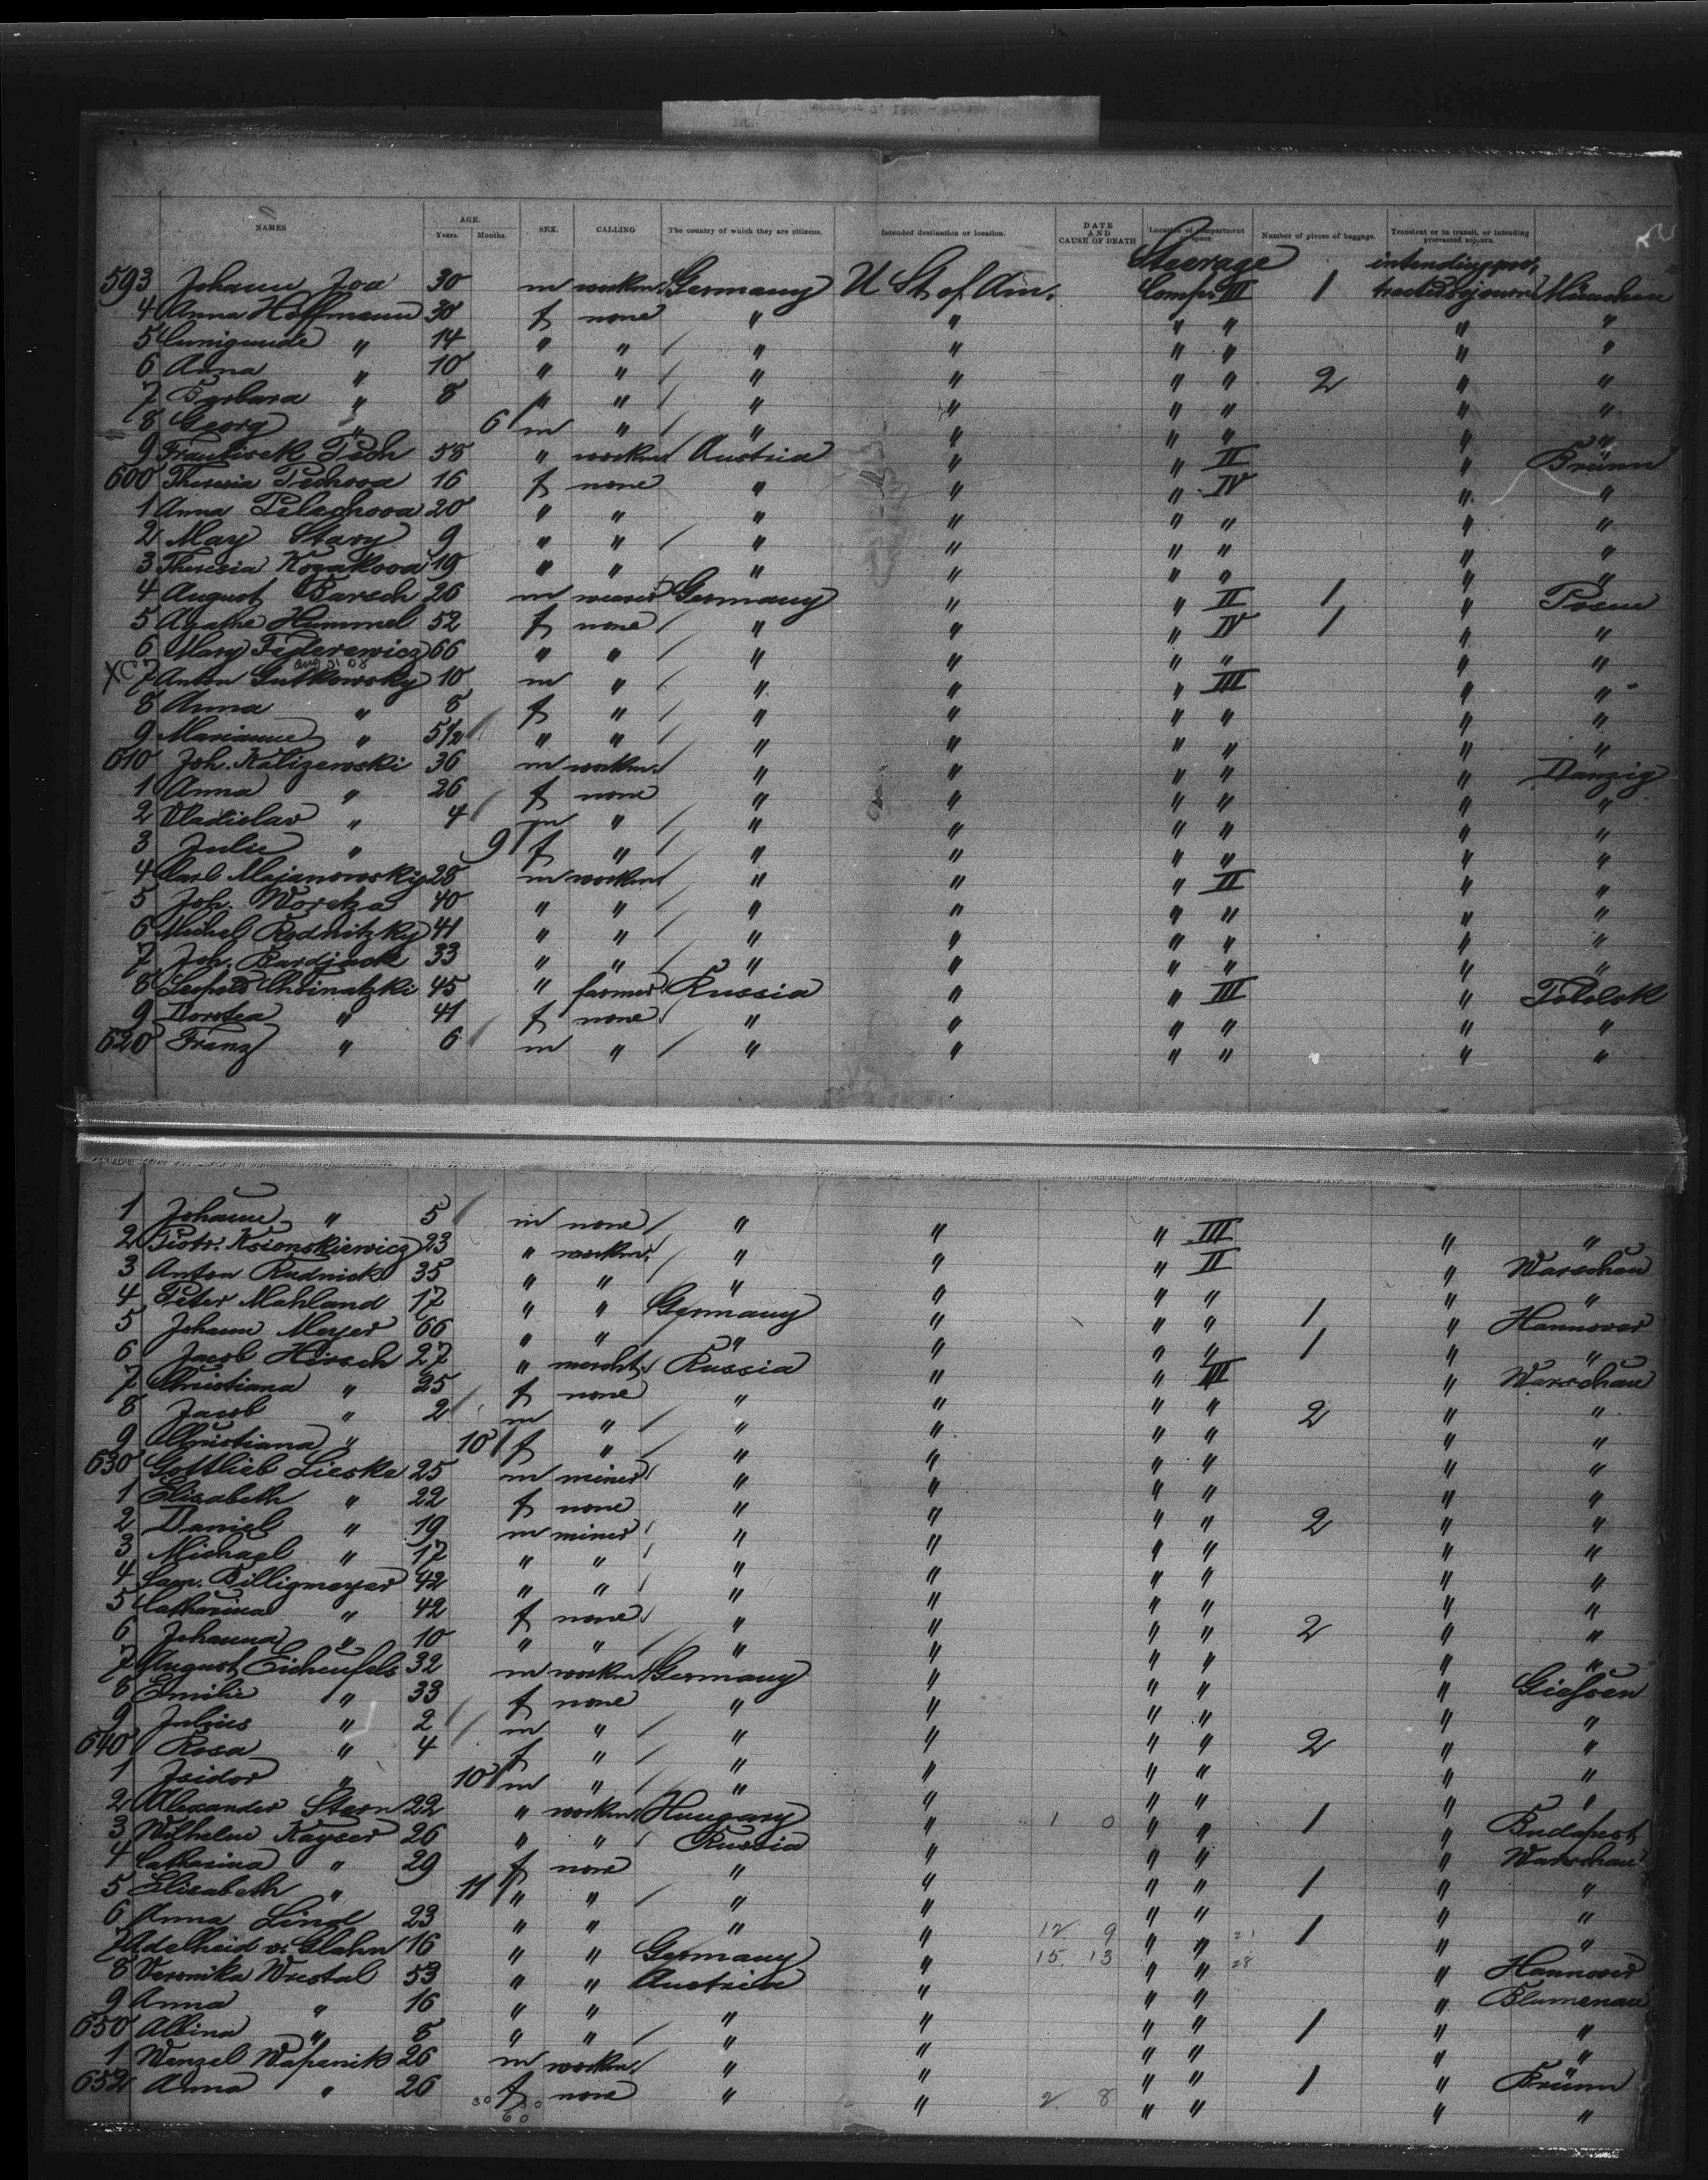 NAMES AGE. Years. Months. SEX. CALLING The country of which they are citizens. Intended destination or location. DATE AND CAUSE OF DEATH Location of compartment or space. Number of pieces of baggage. Transient or in transit, or intending protracted sojourn.
593 Johann Joa 30 m workm. Germany U St. of Am. Steerage Comp. III 1 intending protracted sojourn München
4 Anna Hoffmann 30 f none " " " " " "
5 Cunigunde " 14 " " " " " " " "
6 Anna " 10 " " " " " " 2 " "
7 Barbara " 8 " " " " " " " "
8 Georg " 6 m " " " " " " "
9 Frantisek Pech 58 " workm Austria " " II " Brünn
600 Theresia Pechova 16 f none " " " IV " "
1 Anna Pelechova 20 " " " " " " " "
2 May Stary 9 " " " " " " " "
3 Theresia Kozakova 19 " " " " " " " "
4 August Barsch 26 m weaver Germany " " II 1 " Posen
5 Agathe Hummel 52 f none " " " IV 1 " "
6 Mary Feglerewicz 66 " " " " " " " "
XC 7 Anton Gutkowsky 10 m " " " " III " "
8 Anna " 8 f " " " " " " "
9 Marianne " 5 1/2 " " " " " " " "
610 Joh. Kalizewski 36 m workm. " " " " " Danzig
1 Anna " 26 f none " " " " " "
2 Vladislav " 4 m " " " " " " "
3 Julie " 9 f " " " " " " "
4 Carl Majanowsky 28 m workm " " " II " "
5 Joh. Woretza 40 " " " " " " " "
6 Michel Rednitzky 41 " " " " " " " "
7 Joh. Bardjack 33 " " " " " " " "
8 Leopold Choinatzki 45 " farmer Russia " " III " Tobolsk
9 Dorotea " 41 f none " " " " " "
620 Franz " 6 m " " " " " " "
1 Johann " 5 m none " " " III " "
2 Piotr. Ksionskiewicz 23 " workm. " " " II " Warschau
3 Anton Rudnick 35 " " " " " " " "
4 Peter Mahland 17 " " Germany " " " 1 " Hannover
5 Johann Meyer 66 " " " " " " 1 " "
6 Jacob Hirsch 27 " mercht. Russia " " III " Warschau
7 Christiana " 25 f none " " " " " "
8 Jacob " 2 m " " " " " 2 " "
9 Christiana " 10 f " " " " " " "
630 Gottlieb Lieske 25 m miner " " " " " "
1 Elisabeth " 22 f none " " " " " "
2 Daniel " 19 m miner " " " " 2 " "
3 Michael " 17 " " " " " " " "
4 Sam. Billigmeyer 42 " " " " " " " "
5 Catharina " 42 f none " " " " " "
6 Johanna " 10 " " " " " " 2 " "
7 August Eichenfels 32 m workm Germany " " " " Giessen
8 Emilie " 33 f none " " " " " "
9 Julius " 2 m " " " " " " "
640 Rosa " 4 f " " " " " 2 " "
1 Isidor " 10 m " " " " " " "
2 Alexander Stern 22 " workm Hungary " 1 0 " " 1 " Budapest
3 Wilhelm Kayser 26 " " Russia " " " " Warschau
4 Catharina " 29 f none " " " " " "
5 Elisabeth " 11 " " " " " " 1 " "
6 Anna Lind 23 " " " " " " " "
7 Adelheid v. Glahn 16 " " Germany " 12 9 " " 21 1 " Hannover
8 Veronika Wrestal 53 " " Austria " 15 13 " " 28 " Blumenau
9 Anna " 16 " " " " " " " "
650 Albina " 8 " " " " " " 1 " "
1 Wenzel Wapenik 26 m workm. " " " " " Brünn
652 Anna " 26 f none " " 2 8 " " 1 " "